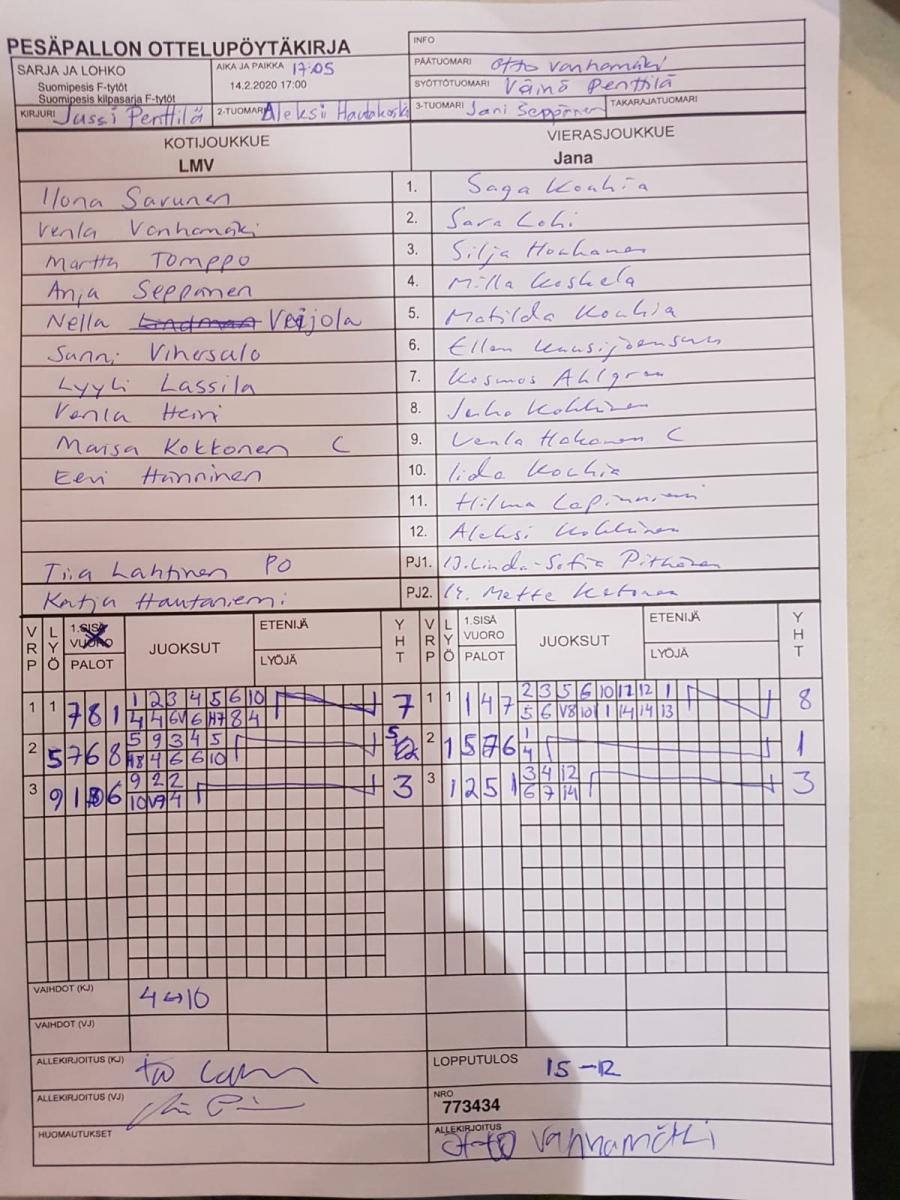 PESÄPALLON OTTELUPÖYTÄKIRJA
INFO
SARJA JA LOHKO
Suomipesis F-tytöt
Suomipesis kilpasarja F-tytöt
AIKA JA PAIKKA 17:05
14.2.2020 17:00
PÄÄTUOMARI Otto Vanhamäki
SYÖTTÖTUOMARI Väinö Penttilä
KIRJURI Jussi Penttilä
2-TUOMARI Aleksi Hautakoski
3-TUOMARI Jani Seppänen
TAKARAJATUOMARI
KOTIJOUKKUE
LMV
VIERASJOUKKUE
Jana
Ilona Savunen 1. Saga Kouhia
Venla Vanhamäki 2. Sara Lohi
Martta Tomppo 3. Silja
Anja Seppänen 4. Milla Koskela
Nella Veijola 5. Matilda Kouhia
Sanni Vihersalo 6. Ellen
Lyyli Lassila 7. Kosmos Ahlgren
Venla Heiri 8. Juho Kokkinen
Maisa Kokkonen C 9. Venla Hakanen C
Eevi Hänninen 10. Iida Kouhia
11. Hilma Lapinniemi
12. Aleksi Kokkinen
Tiia Lahtinen PO PJ1. 13. Linda-Sofia Pitkänen
Katja Hautaniemi PJ2. 14. Mette Ketonen
VRP LYÖ 1.SISÄ VUORO PALOT JUOKSUT ETENIJÄ LYÖJÄ YHT VRP LYÖ 1.SISÄ VUORO PALOT JUOKSUT ETENIJÄ LYÖJÄ YHT
1 2 3 4 5 6 10 2 3 5 6 10 11 12 1
1 1 7 8 1 7 1 1 1 4 7 8
4 4 6V 6 H7 8 4 5 6 V8 10 1 14 14 13
5 9 3 4 5 1
2 5 7 6 8 5 2 1 5 6 1
H8 4 6 6 10 4
9 2 2 3 4 12
3 9 1 6 3 3 1 2 5 1 3
10 V9 4 6 7 14
VAIHDOT (KJ) 4↔10
VAIHDOT (VJ)
ALLEKIRJOITUS (KJ)
LOPPUTULOS 15-12
ALLEKIRJOITUS (VJ)
NRO
773434
HUOMAUTUKSET
ALLEKIRJOITUS
Otto Vanhamäki